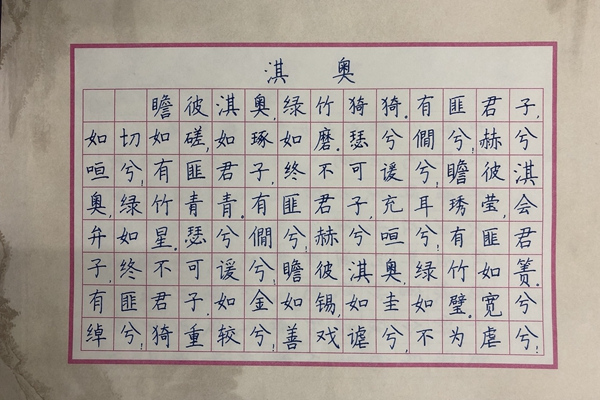 淇奥
瞻彼淇奥,绿竹猗猗。有匪君子,
如切如磋,如琢如磨。瑟兮僩兮,赫兮
咺兮!有匪君子,终不可谖兮!瞻彼淇
奥,绿竹青青。有匪君子,充耳琇莹,会
弁如星。瑟兮僩兮!赫兮咺兮!有匪君
子,终不可谖兮!瞻彼淇奥,绿竹如箦。
有匪君子,如金如锡,如圭如璧。宽兮
绰兮!猗重较兮!善戏谑兮,不为虐兮!